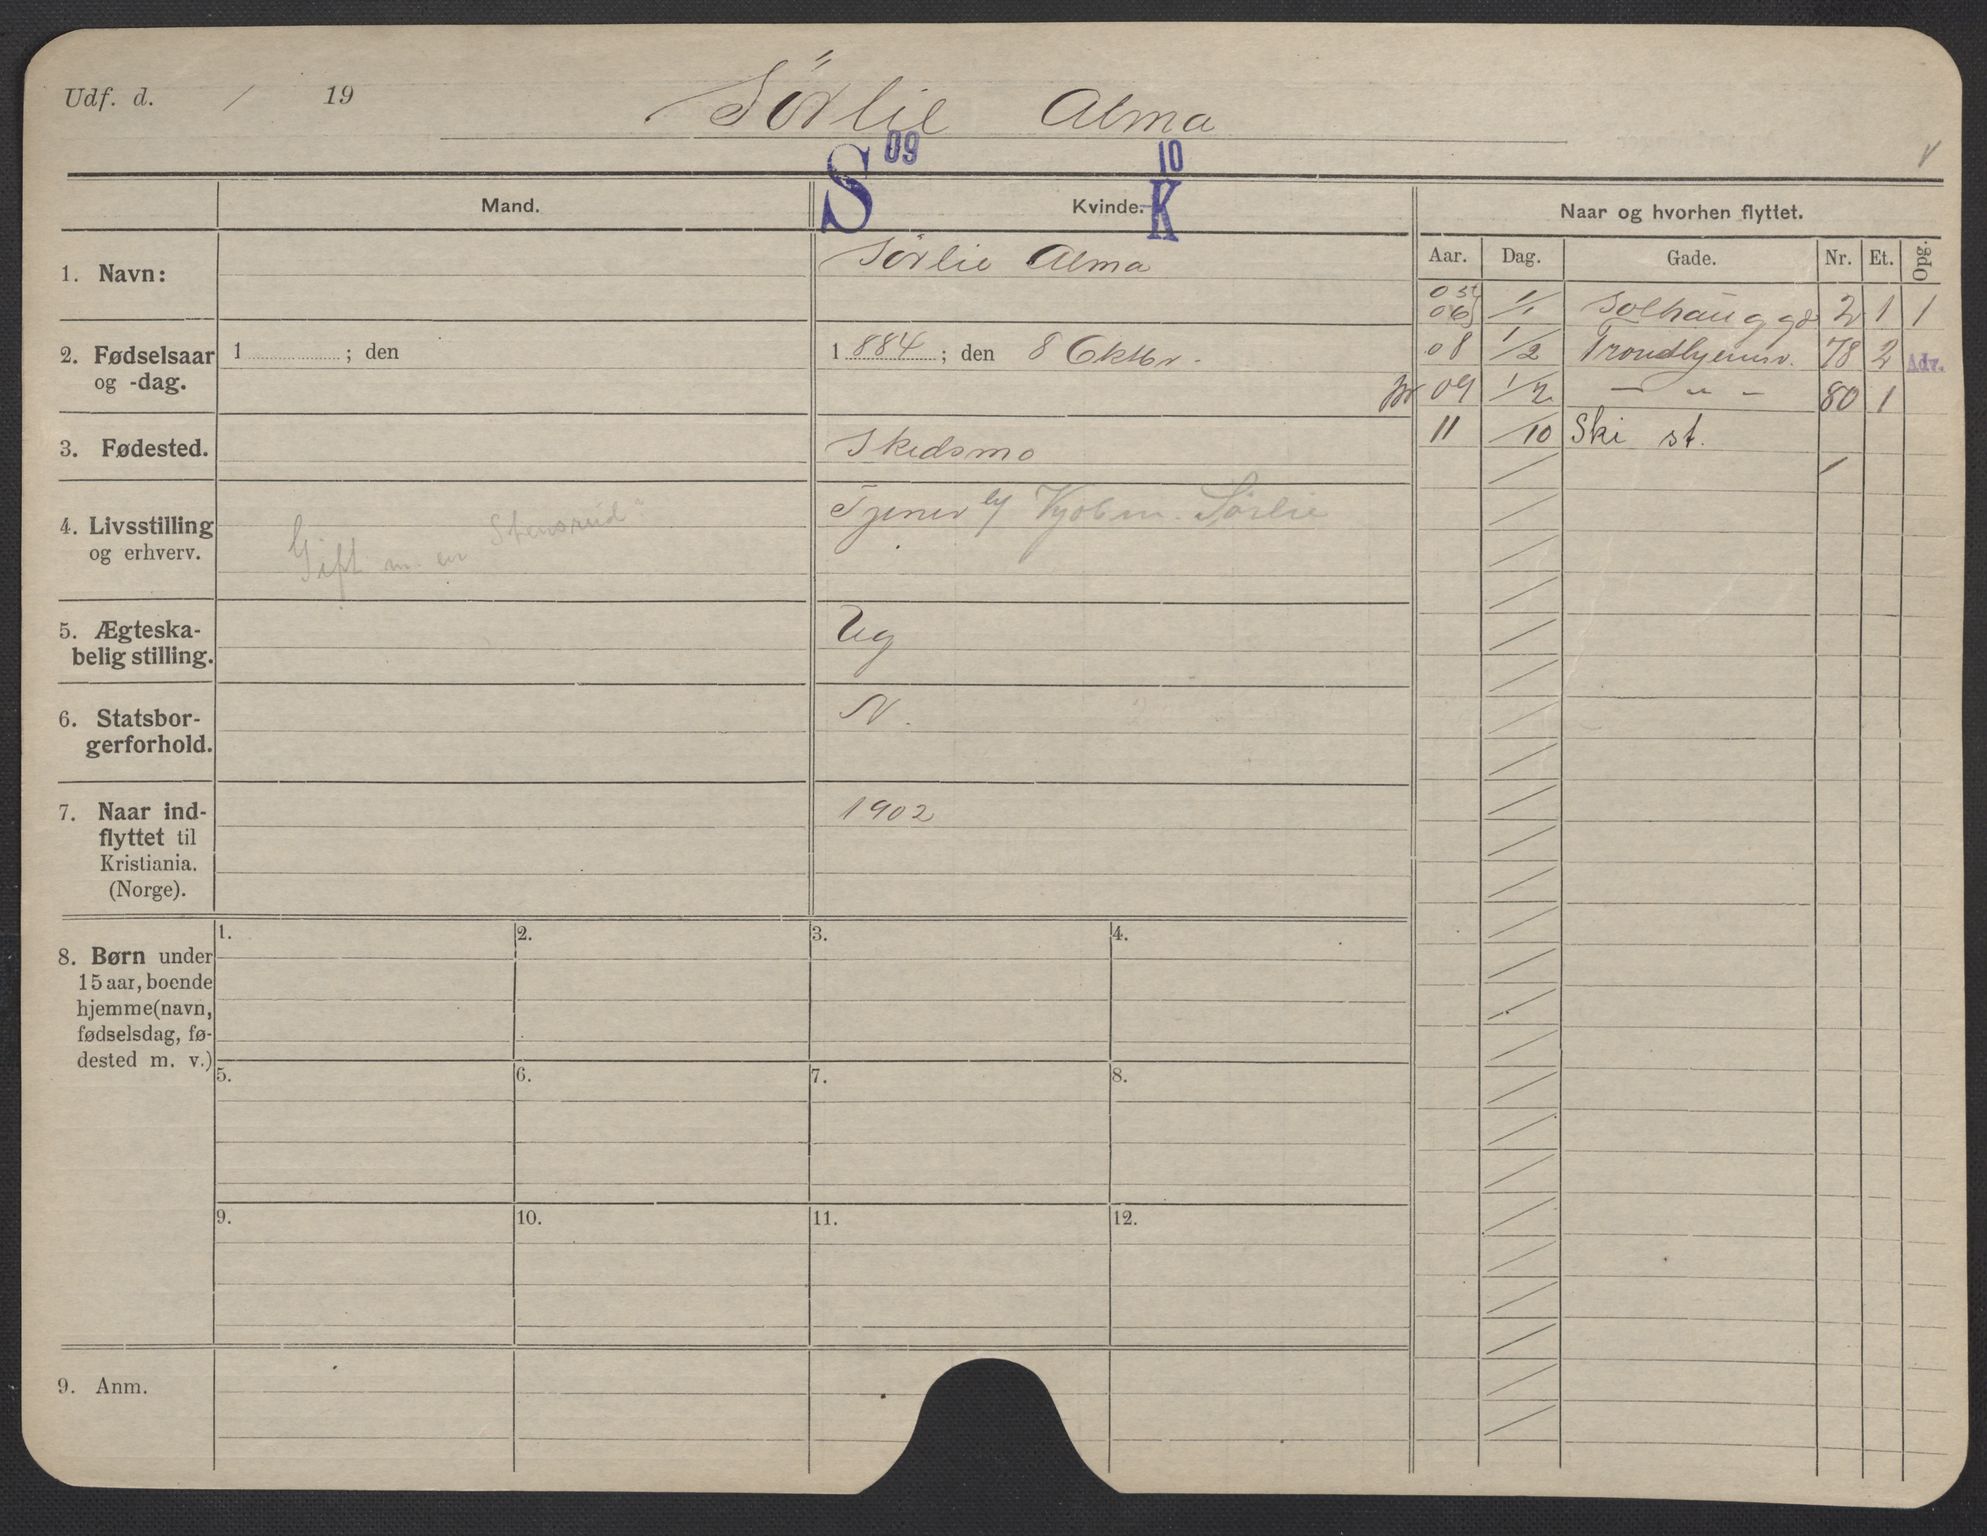 Udf. d. / 19 Sörlie Alma
S 09 10 K
Mand. Kvinde. Naar og hvorhen flyttet.
Aar. Dag. Gade. Nr. Et. Opg.
1. Navn: Sörlie Alma
05 06 1/1 Solhauggd 2 1 1
2. Fødselsaar og -dag. 1 ; den 1 884 ; den 8 Oktbr.
08 1/2 Trondhjemsv. 78 2 Adr.
09 1/2 — " — 80 1
11 /10 Ski st.
3. Fødested. Skedsmo
4. Livsstilling og erhverv. Gift m. en Stensrud Tjener Kjøbm. Sørlie
5. Ægteska-
belig stilling. Ug
6. Statsbor-
gerforhold. N.
7. Naar ind-
flyttet til
Kristiania.
(Norge). 1902
8. Børn under
15 aar, boende
hjemme (navn,
fødselsdag, fø-
dested m. v.)
1. 2. 3. 4.
5. 6. 7. 8.
9. 10. 11. 12.
9. Anm.